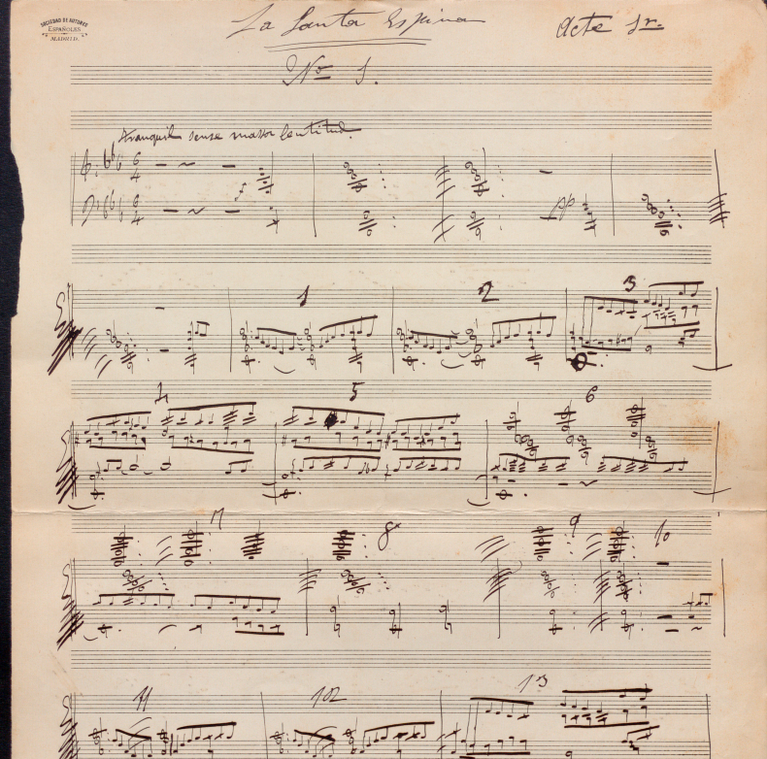 SOCIEDAD DE AUTORES
ESPAÑOLES
MADRID.
La Santa Espina Acte 1r.
No 1.
Tranquil sense massa lentitud.
6 4
6 4
f
pp
1 2 3
4 5 6
7 8 9 10
11 12 13